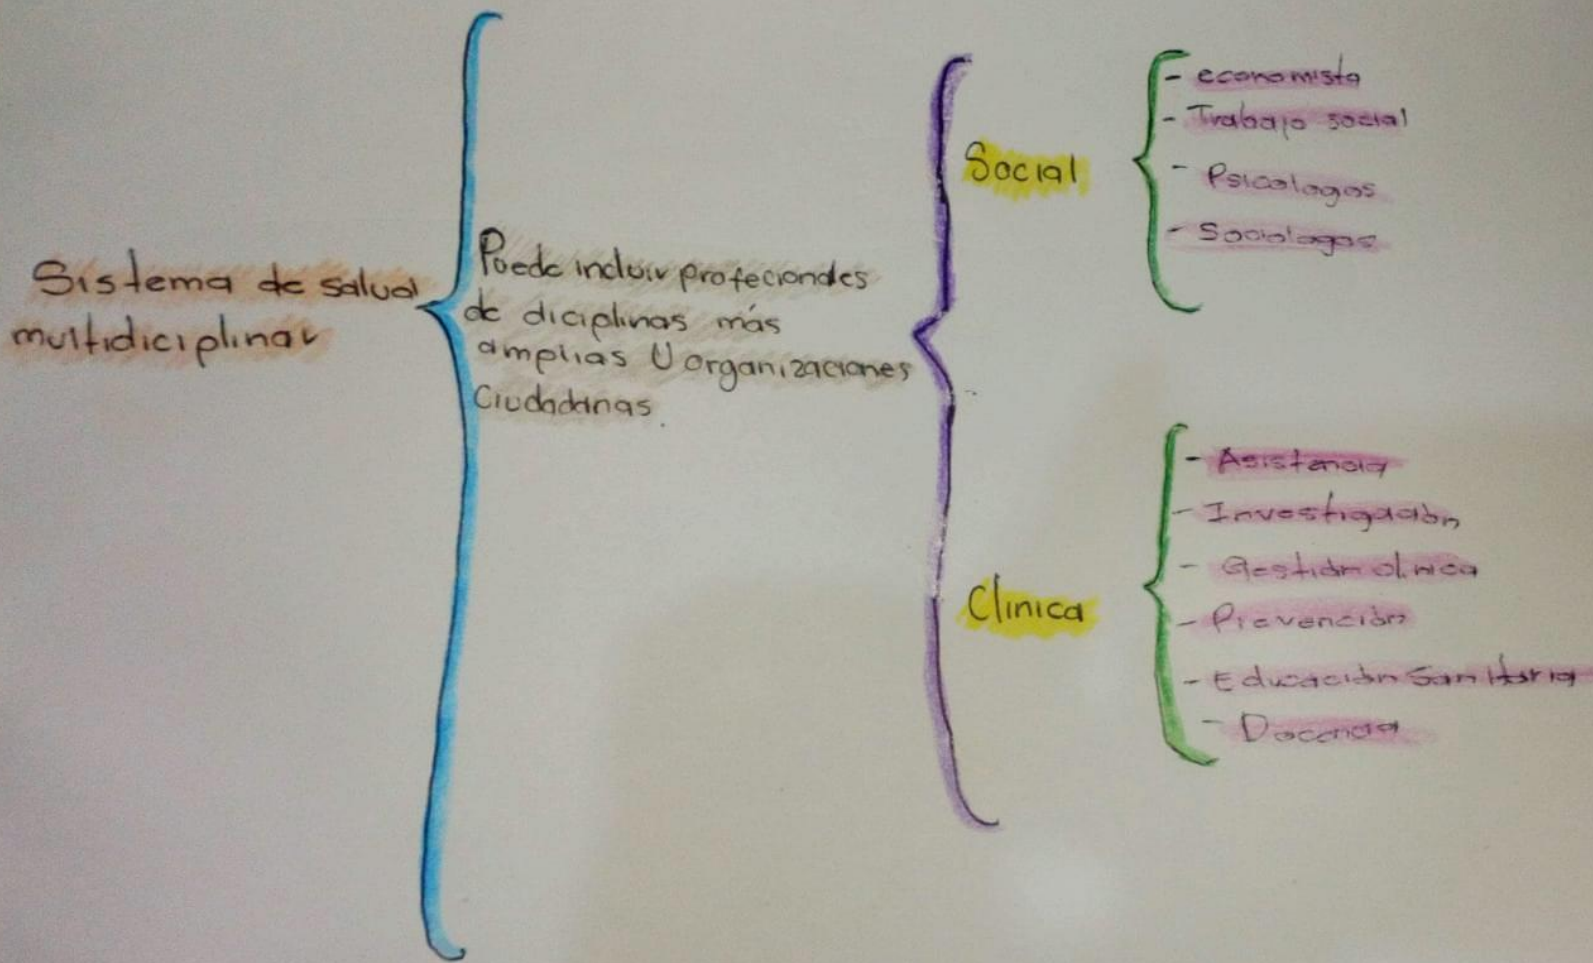 Sistema de salud
multidiciplinar
Puede incluir profecionales
de diciplinas más
amplias U organizaciones
Ciudadanas.
Social
- economista
- Trabajo social
- Psicologos
- Sociologos
Clinica
- Asistencia
- Investigación
- Gestión clinica
- Prevención
- Educación Sanitaria
- Docencia